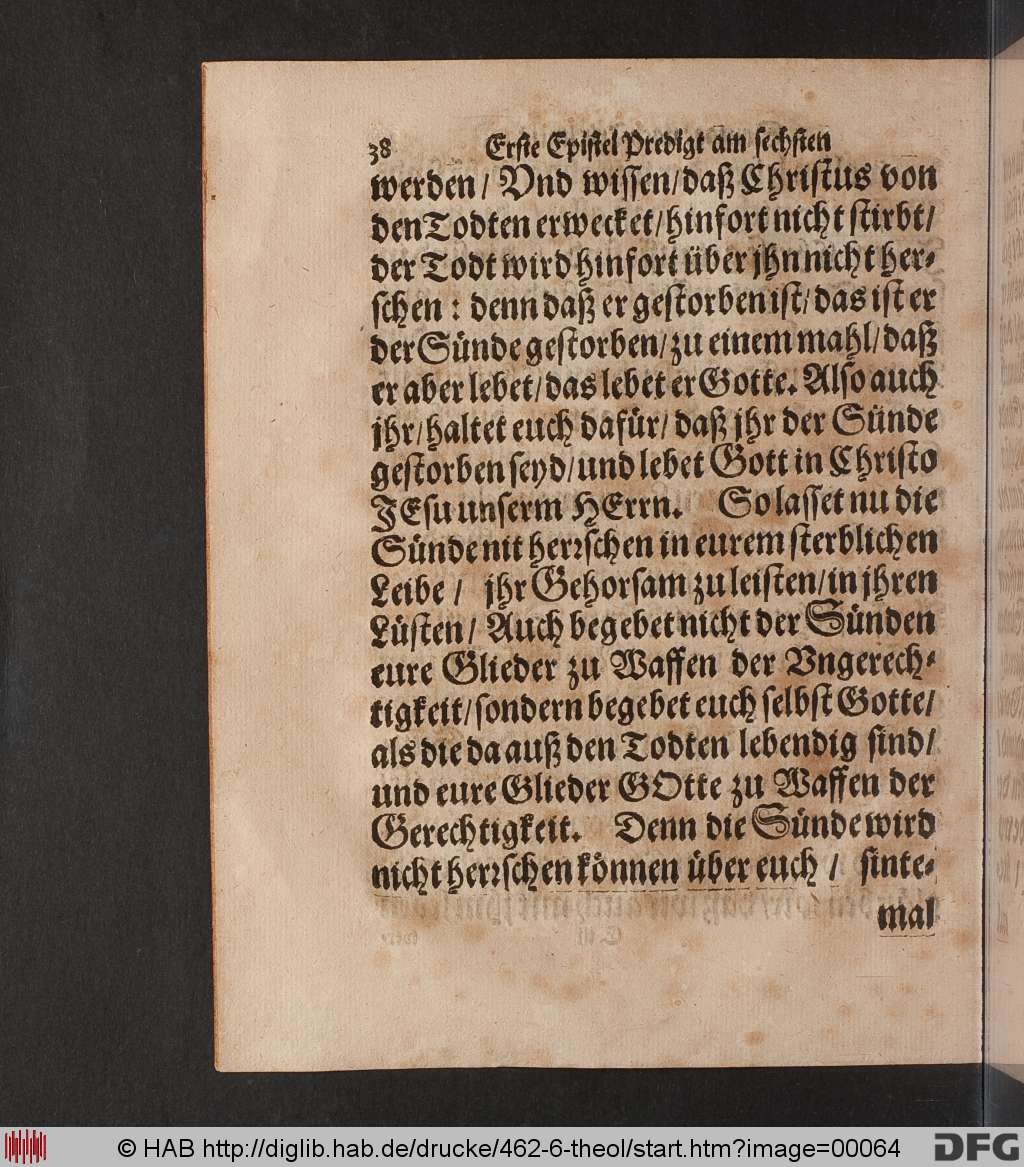 38 Erste Epistel Predigt am sechsten
werden / Vnd wissen / daß Christus von
den Todten erwecket / hinfort nicht stirbt /
der Todt wird hinfort über jhn nicht her-
schen : denn daß er gestorben ist / das ist er
der Sünde gestorben / zu einem mahl / daß
er aber lebet / das lebet er Gotte. Also auch
jhr / haltet euch dafür / daß jhr der Sünde
gestorben seyd / und lebet Gott in Christo
JEsu unserm HErrn. So lasset nu die
Sünde nit herrschen in eurem sterblichen
Leibe / jhr Gehorsam zu leisten / in jhren
Lüsten / Auch begebet nicht der Sünden
eure Glieder zu Waffen der Vngerech-
tigkeit / sondern begebet euch selbst Gotte /
als die da auß den Todten lebendig sind /
und eure Glieder GOtte zu Waffen der
Gerechtigkeit. Denn die Sünde wird
nicht herrschen können über euch / sinte-
mal
© HAB http://diglib.hab.de/drucke/462-6-theol/start.htm?image=00064
DFG